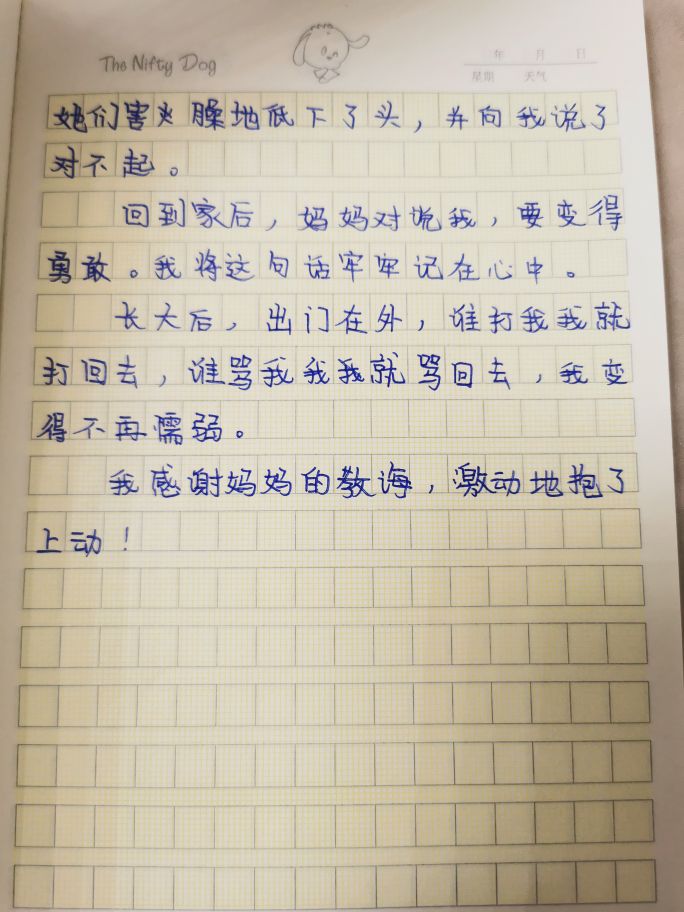 The Nifty Dog
年 月 日
星期 天气
她们害火臊地低下了头，并向我说了
对不起。
回到家后，妈妈对说我，要变得
勇敢。我将这句话牢牢记在心中。
长大后，出门在外，谁打我我就
打回去，谁骂我我我就骂回去，我变
得不再懦弱。
我感谢妈妈的教诲，激动地抱了
上动！